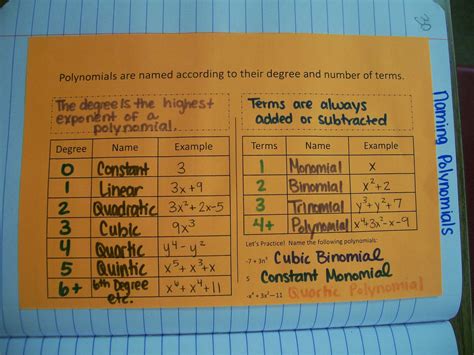 Polynomials are named according to their degree and number of terms.
The degree is the highest
exponent of a
polynomial.
Degree Name Example
0 Constant 3
1 Linear 3x+9
2 Quadratic 3x²+2x-5
3 Cubic 9x³
4 Quartic y⁴-y²
5 Quintic x⁵+x³+x
6+ 6th Degree etc. x⁶+x⁴+11
Terms are always
added or subtracted
Terms Name Example
1 Monomial x
2 Binomial x²+2
3 Trinomial y³+y²+7
4+ Polynomial x⁴+3x²-x-9
Let's Practice! Name the following polynomials:
-7 + 3n³ Cubic Binomial
5 Constant Monomial
Quartic Polynomial
Naming Polynomials